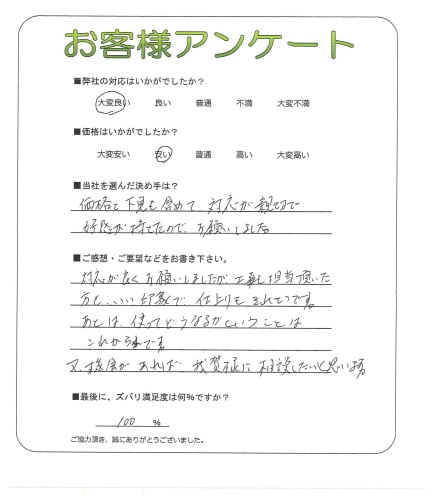 お客様アンケート
■弊社の対応はいかがでしたか？
大変良い 良い 普通 不満 大変不満
■価格はいかがでしたか？
大変安い 安い 普通 高い 大変高い
■当社を選んだ決め手は？
価格と下見も含めて、対応が親切で
好感が持てたので、お願いしました
■ご感想・ご要望などをお書き下さい。
対応が良くお願いしましたが工事も担当頂いた
方も、いい印象で、仕上りもきれいです
あとは、使ってどうなるかということは
これからです
又、機会があれば、相談したいと思います
■最後に、ズバリ満足度は何％ですか？
100 ％
ご協力頂き、誠にありがとうございました。